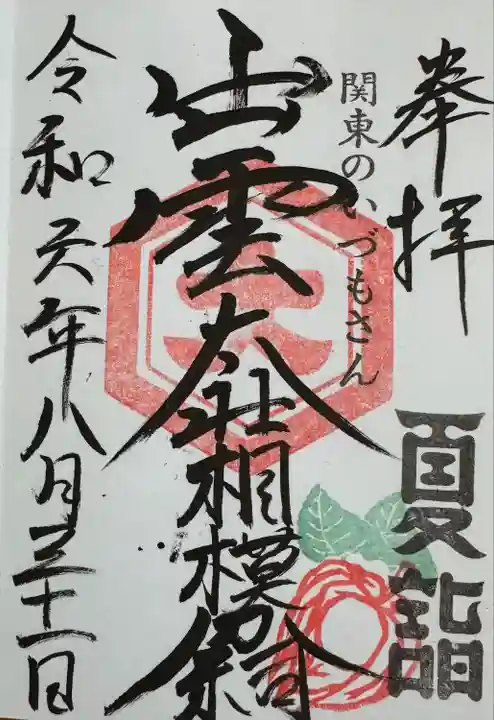 奉拝
夏詣
関東のいづもさん
出雲大社相模分祠
大
令和元年八月三十一日